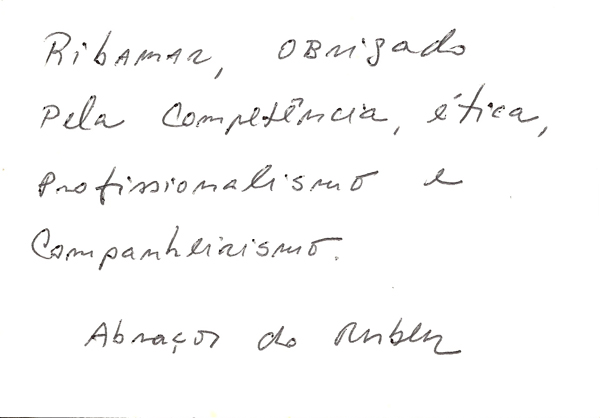 Ribamar, obrigado
pela competência, ética,
profissionalismo e
companheirismo.
Abraços do Ruben